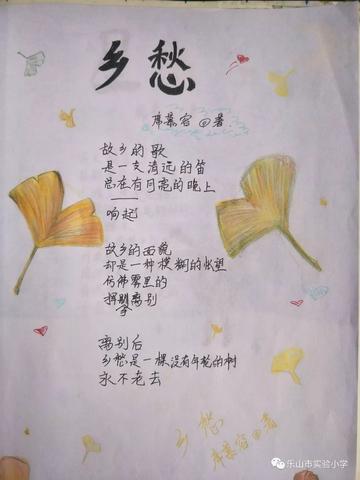 乡愁
席慕容 著
故乡的歌
是一支清远的笛
总在有月亮的晚上
响起
故乡的面貌
却是一种模糊的怅望
仿佛雾里的
挥手离别
离别后
乡愁是一棵没有年轮的树
永不老去
乡愁
席慕容 著
乐山市实验小学